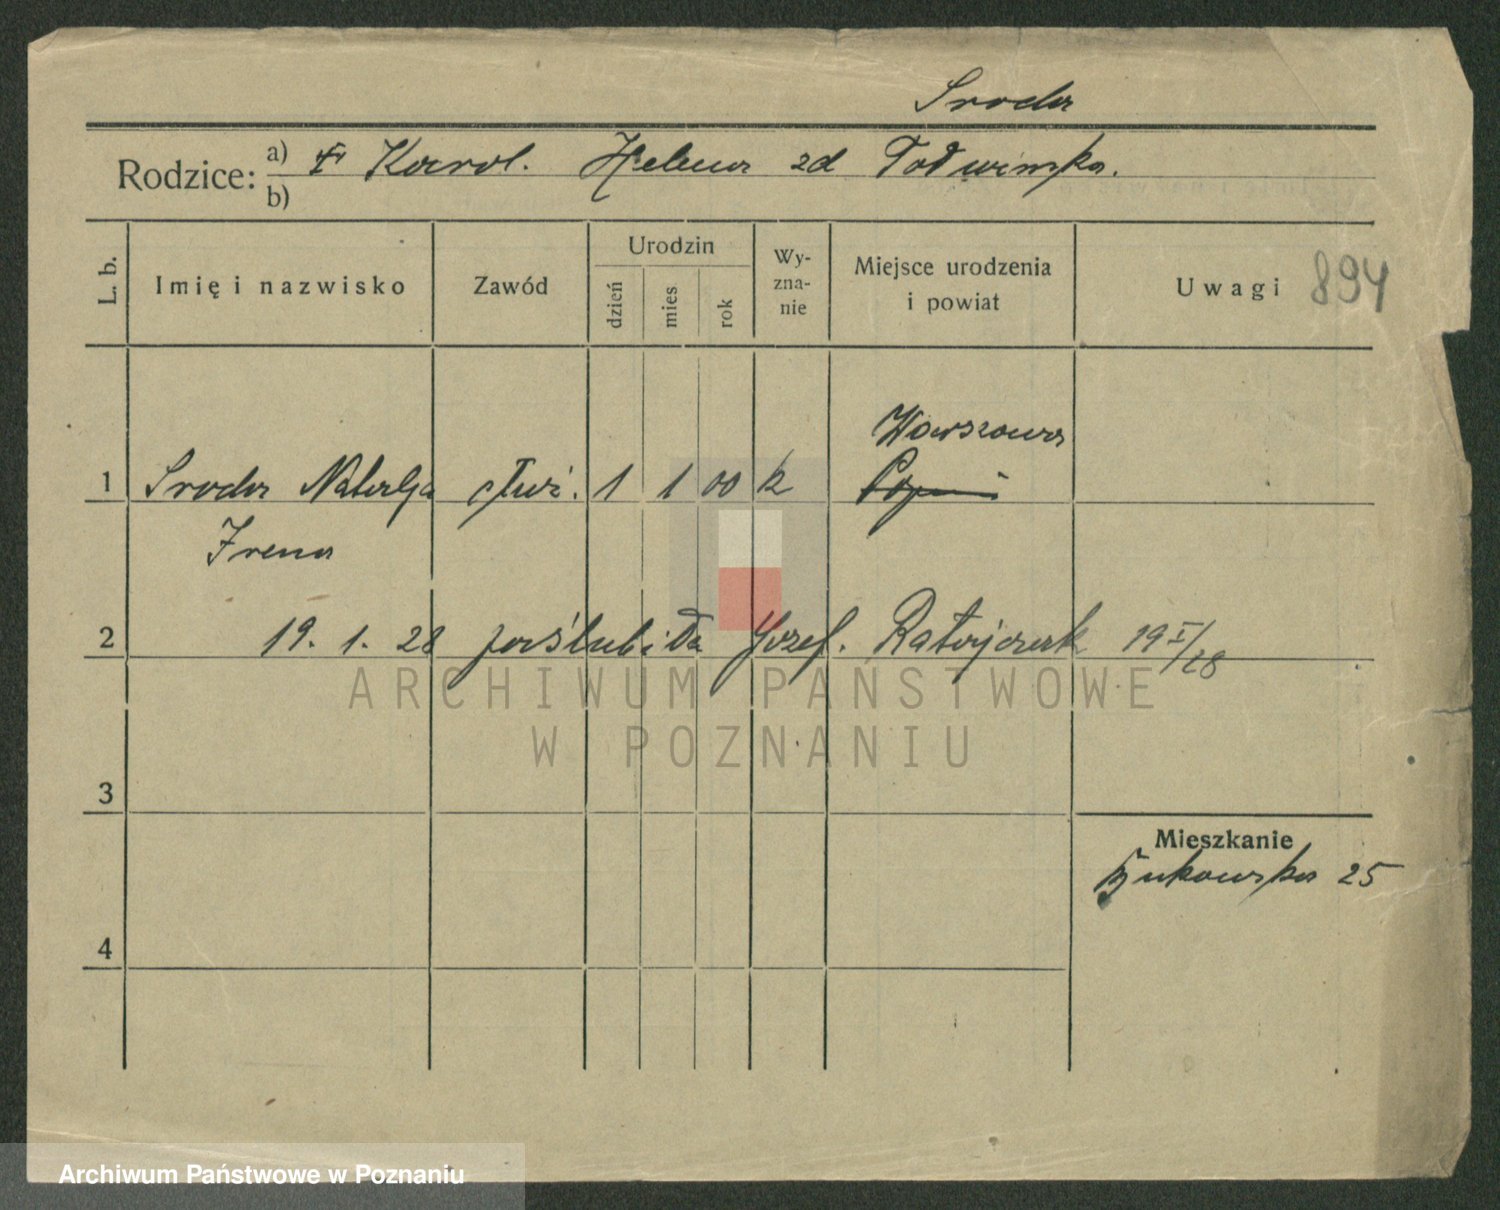 Sroda
Rodzice: a) Karol. Helena zd
b)
L. b. Imię i nazwisko Zawód Urodzin dzień mies rok Wy-zna-nie Miejsce urodzenia i powiat Uwagi 894
Warszawa
1 Sroda Natalja służ. 1 1 00 k
Irena
2 19. 1. 28 poślubiła Józef. Ratajczak 19 I/28
ARCHIWUM PAŃSTWOWE
W POZNANIU
3
Mieszkanie
Bukowska 25
4
Archiwum Państwowe w Poznaniu